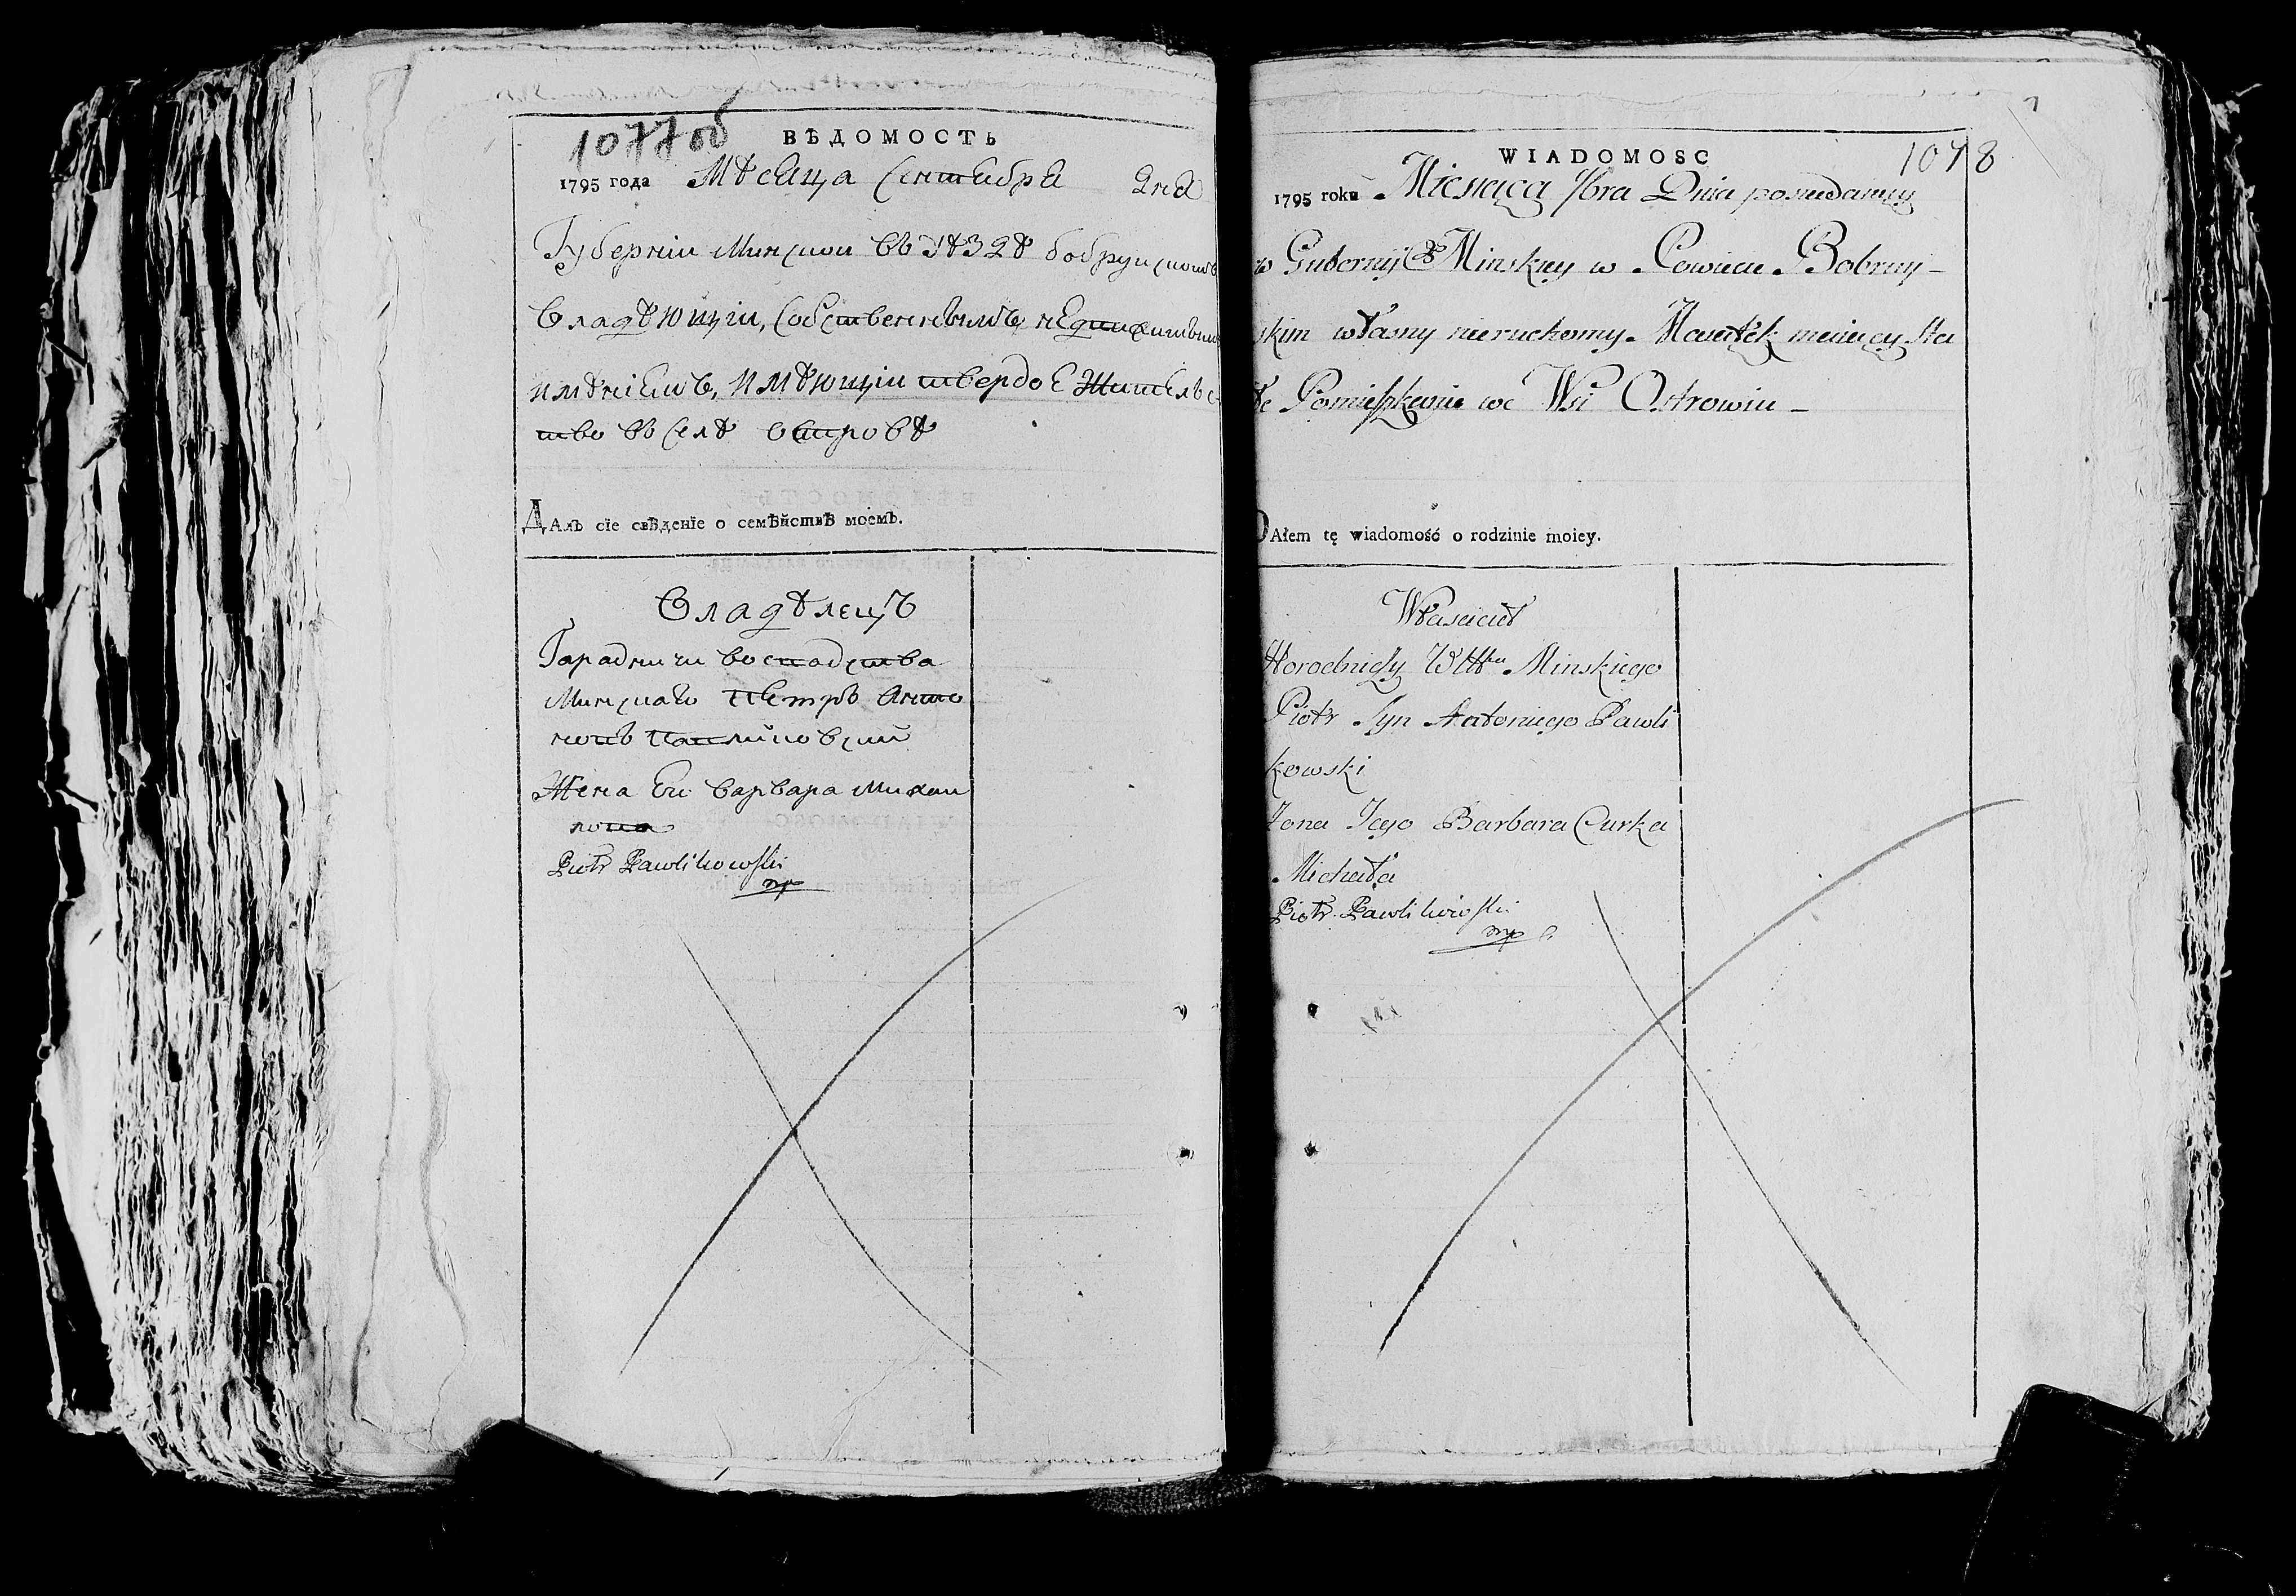 1077 об
ВѢДОМОСТЬ
1795 года Мѣсяца Сентября дня
Губерніи Минской въ уѣздѣ бобруйскомъ
владѣющіи, собственнымъ недвижимымъ
имѣніемъ, имѣющіи твердое жительс-
тво въ селѣ островѣ
ДАлъ сїе свѣденїе о семѣйствѣ моемъ.
Владѣлецъ
Гарадничи воеводства
Минскаго Петръ Анто
новъ Павликовский
Жена Ею варвара Михаи
лова
Piotr Pawlikowski
mp
1078
WIADOMOSC
1795 roku Miesiąca 7bra Dnia posiedaiący
w Gubernij Minskiey w Powiecie Bobruy-
skim własny nieruchomy Maiątek maiący sta
łe Pomieszkanie we Wsi Ostrowiu -
DAłem tę wiadomość o rodzinie moiey.
Właściciel
Horodniczy Minskiego
Piotr Syn Antoniego Pawli
kowski
Żona Jego Barbara Curka
Michała
Piotr Pawlikowski
mp